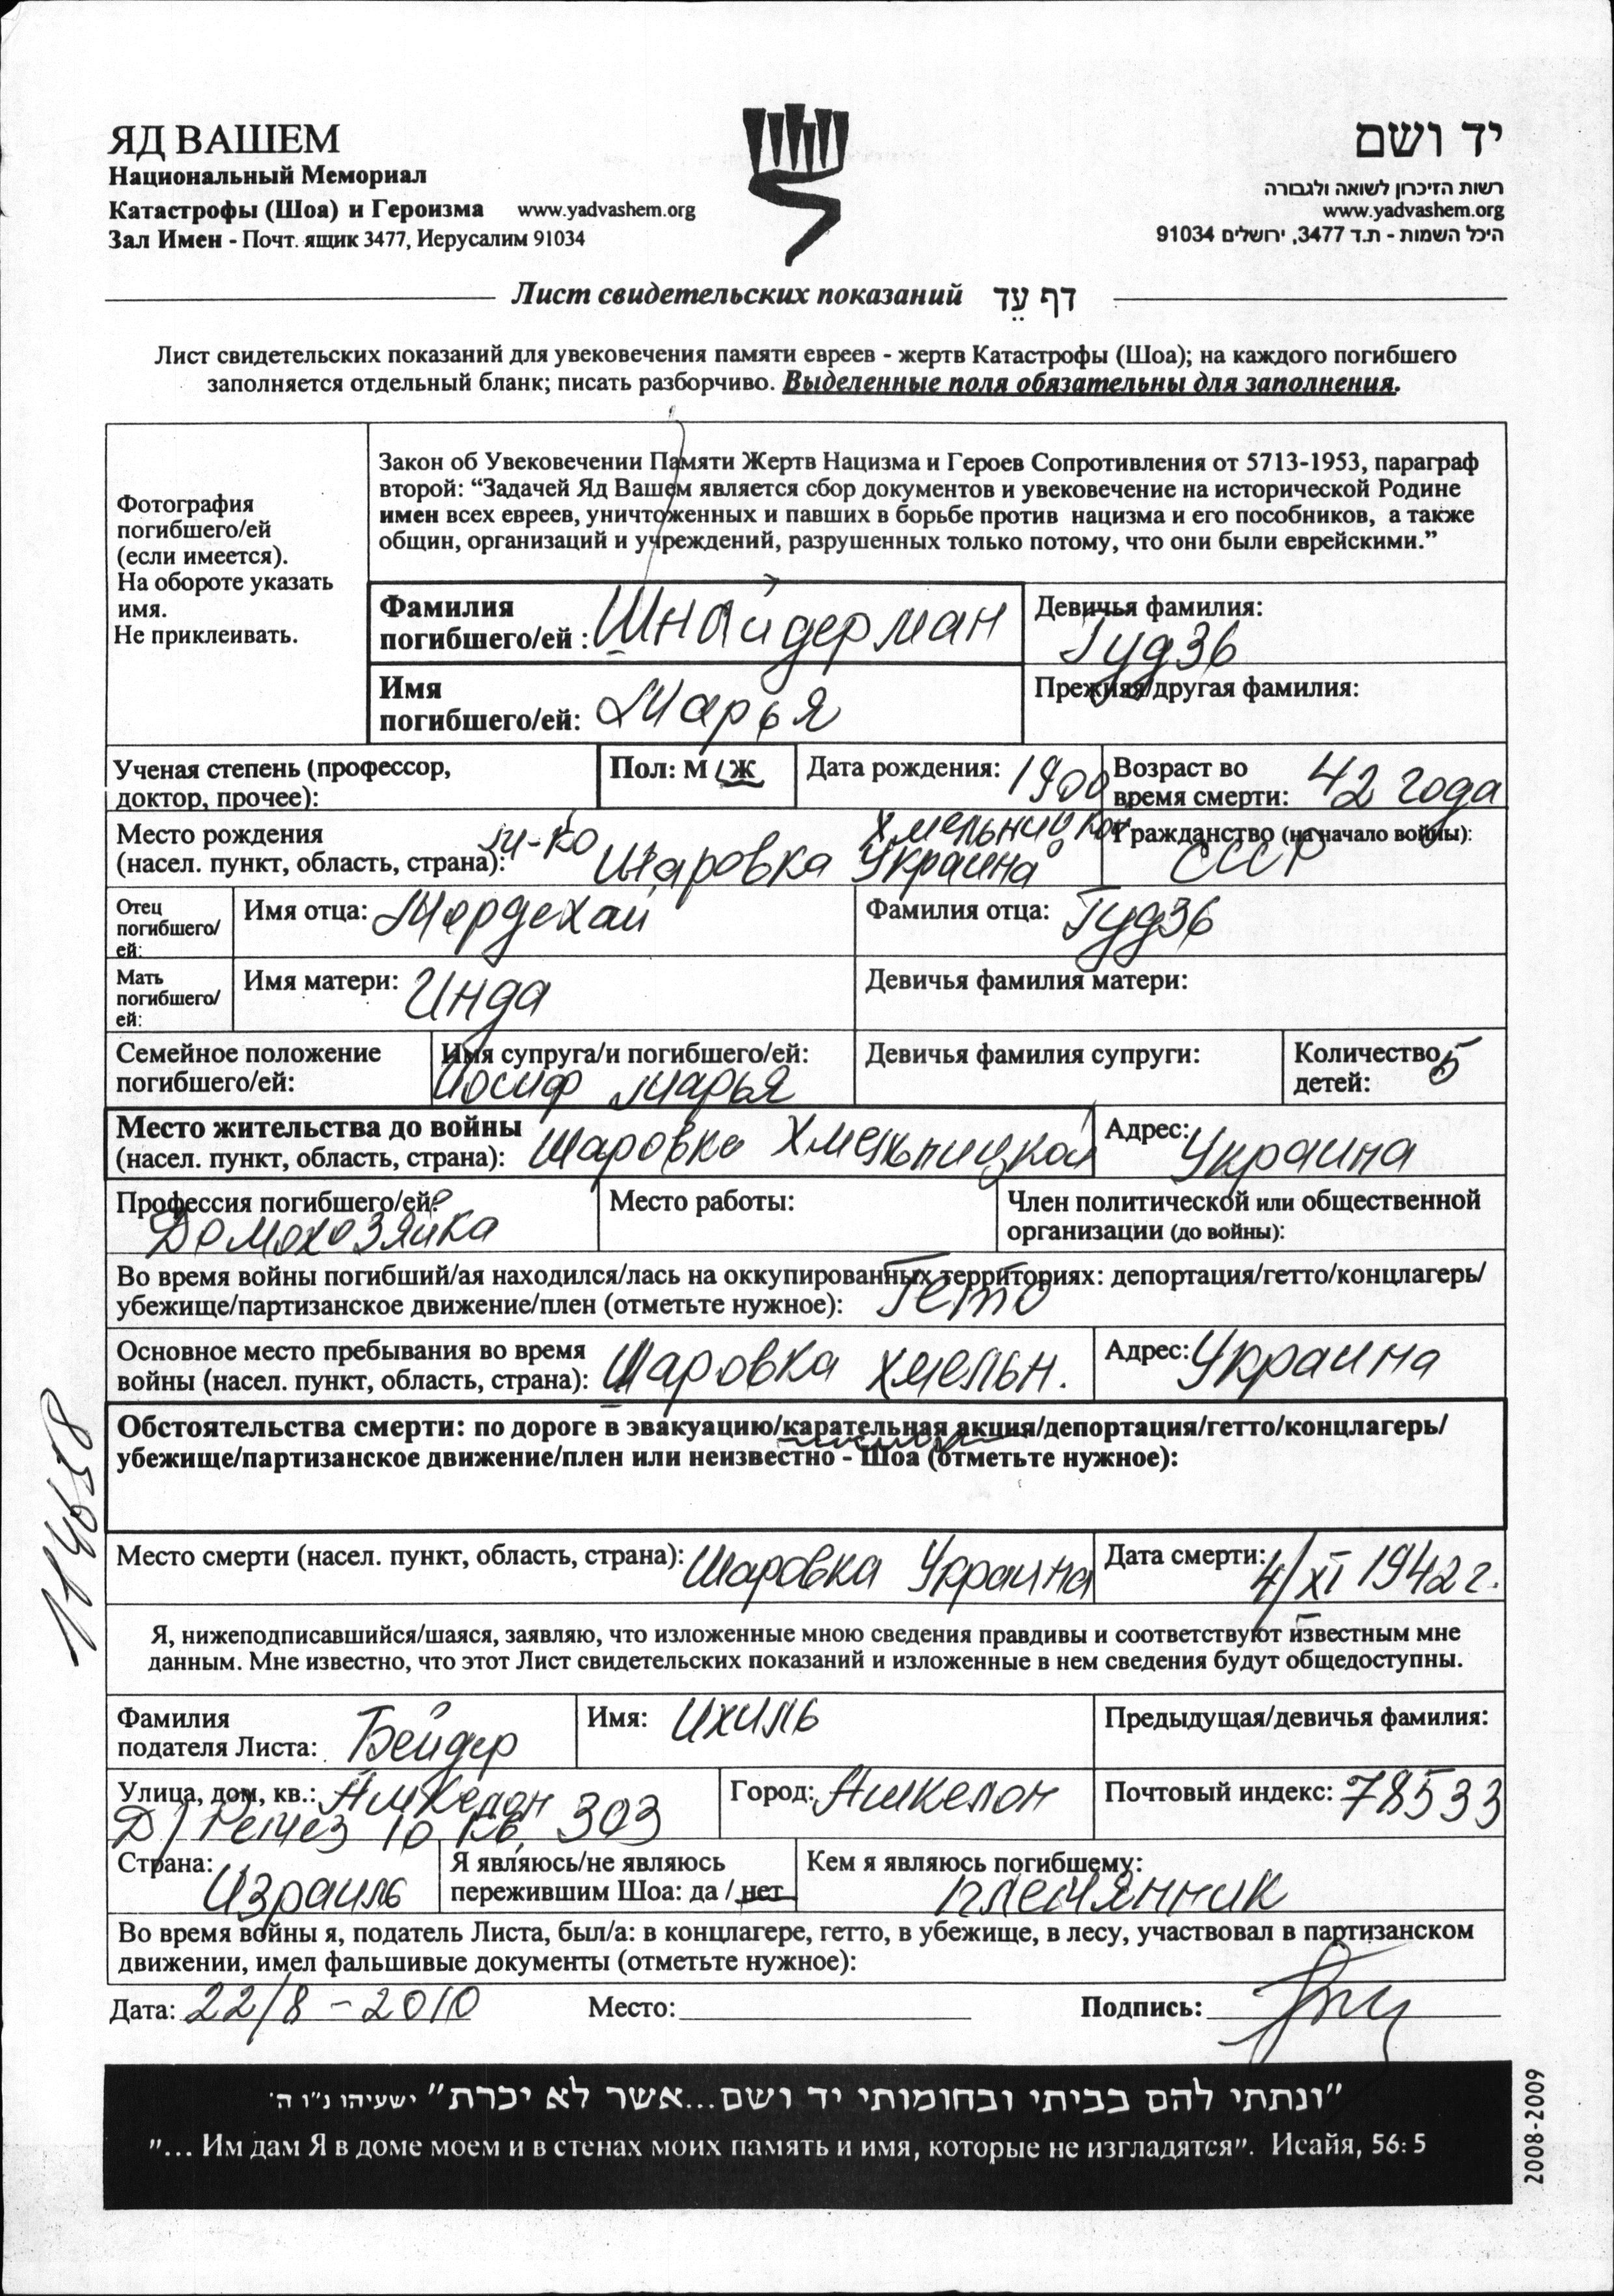 ЯД ВАШЕМ
Национальный Мемориал
Катастрофы (Шоа) и Героизма www.yadvashem.org
Зал Имен - Почт. ящик 3477, Иерусалим 91034
יד ושם
רשות הזיכרון לשואה ולגבורה
www.yadvashem.org
היכל השמות - ת.ד 3477, ירושלים 91034
Лист свидетельских показаний דף עֵד
Лист свидетельских показаний для увековечения памяти евреев - жертв Катастрофы (Шоа); на каждого погибшего
заполняется отдельный бланк; писать разборчиво. Выделенные поля обязательны для заполнения.
Фотография
погибшего/ей
(если имеется).
На обороте указать
имя.
Не приклеивать.
Закон об Увековечении Памяти Жертв Нацизма и Героев Сопротивления от 5713-1953, параграф
второй: “Задачей Яд Вашем является сбор документов и увековечение на исторической Родине
имен всех евреев, уничтоженных и павших в борьбе против нацизма и его пособников, а также
общин, организаций и учреждений, разрушенных только потому, что они были еврейскими.”
Фамилия
погибшего/ей : Шнайдерман
Девичья фамилия:
Гудзь
Имя
погибшего/ей: Марья
Прежняя/другая фамилия:
Ученая степень (профессор,
доктор, прочее):
Пол: М / Ж
Дата рождения: 1900
Возраст во
время смерти: 42 года
Место рождения Хмельницкой
(насел. пункт, область, страна): м-ко Шаровка Украина
Гражданство (на начало войны):
СССР
Отец
погибшего/
ей:
Имя отца: Мордехай
Фамилия отца: Гудзь
Мать
погибшего/
ей:
Имя матери: Инда
Девичья фамилия матери:
Семейное положение
погибшего/ей:
Имя супруга/и погибшего/ей:
Иосиф Марья
Девичья фамилия супруги:
Количество 5
детей:
Место жительства до войны
(насел. пункт, область, страна): Шаровка Хмельницкой
Адрес: Украина
Профессия погибшего/ей:
Домохозяйка
Место работы:
Член политической или общественной
организации (до войны):
Во время войны погибший/ая находился/лась на оккупированных территориях: депортация/гетто/концлагерь/
убежище/партизанское движение/плен (отметьте нужное): Гетто
Основное место пребывания во время
войны (насел. пункт, область, страна): Шаровка Хмельн.
Адрес: Украина
Обстоятельства смерти: по дороге в эвакуацию/карательная акция/депортация/гетто/концлагерь/
убежище/партизанское движение/плен или неизвестно - Шоа (отметьте нужное):
Место смерти (насел. пункт, область, страна): Шаровка Украина
Дата смерти: 4/XI 1942 г.
Я, нижеподписавшийся/шаяся, заявляю, что изложенные мною сведения правдивы и соответствуют известным мне
данным. Мне известно, что этот Лист свидетельских показаний и изложенные в нем сведения будут общедоступны.
Фамилия
подателя Листа: Бейдер
Имя: Ихиль
Предыдущая/девичья фамилия:
Улица, дом, кв.: Ашкелон
10 кв. 303
Город: Ашкелон
Почтовый индекс: 78533
Страна:
Израиль
Я являюсь/не являюсь
пережившим Шоа: да / нет
Кем я являюсь погибшему:
племянник
Во время войны я, податель Листа, был/а: в концлагере, гетто, в убежище, в лесу, участвовал в партизанском
движении, имел фальшивые документы (отметьте нужное):
Дата: 22/8 - 2010
Место:
Подпись:
"ונתתי להם בביתי ובחומותי יד ושם...אשר לא יכרת" ישעיהו נ"ו ה'
"... Им дам Я в доме моем и в стенах моих память и имя, которые не изгладятся". Исайя, 56: 5
2008-2009
114658